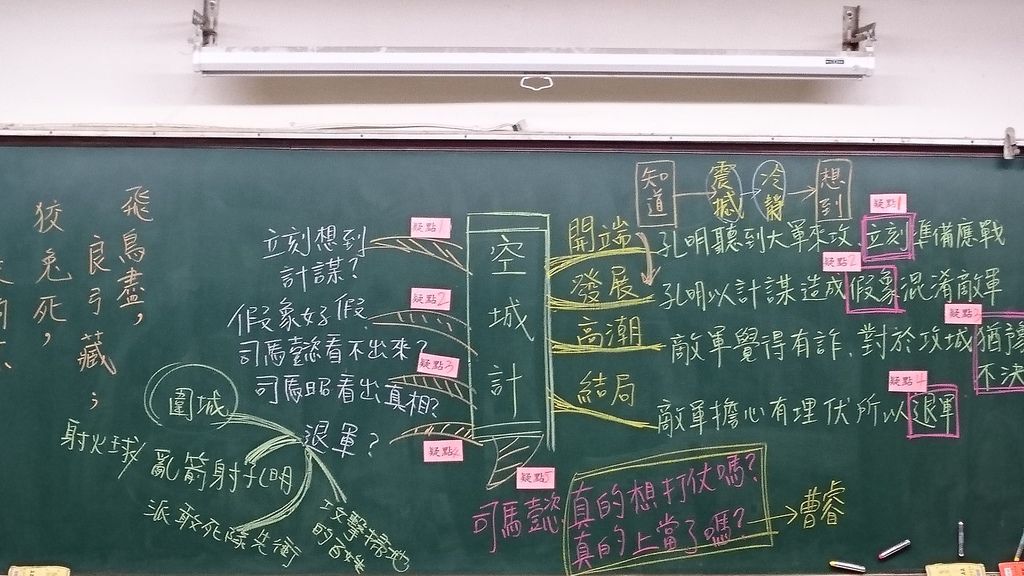 飛鳥盡，
良弓藏；
狡兔死，
立刻想到
計謀？
疑點1
假象好假
疑點2
司馬懿看不出來？
疑點3
司馬昭看出真相？
退軍？
疑點4
圍城
射火球
亂箭射孔明
派敢死隊先衝
攻擊掃地
的百姓
空城計
知道
震撼
冷靜
想到
開端
孔明聽到大軍來攻，立刻準備應戰
疑點1
發展
孔明以計謀造成假象混淆敵軍
疑點2
高潮
敵軍覺得有詐，對於攻城猶豫
不決
疑點3
結局
敵軍擔心有埋伏所以退軍
疑點4
疑點5
司馬懿
真的想打仗嗎？
真的上當了嗎？
曹睿